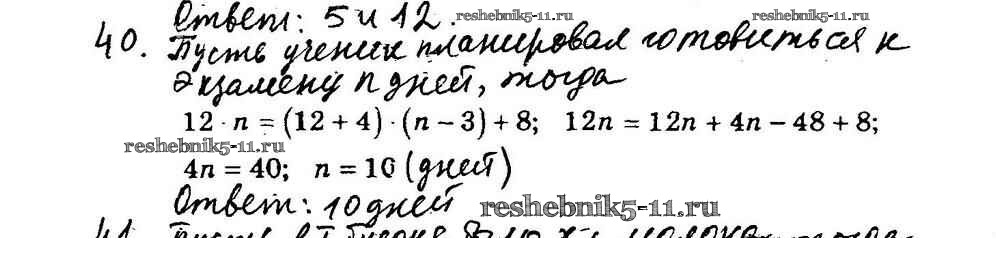 Ответ: 5 и 12.
reshebnik5-11.ru
40. Пусть ученик планировал готовиться к
экзамену n дней, тогда
12 · n = (12 + 4) · (n − 3) + 8; 12n = 12n + 4n − 48 + 8;
reshebnik5-11.ru
4n = 40; n = 10 (дней)
Ответ: 10 дней
reshebnik5-11.ru
41. Пусть